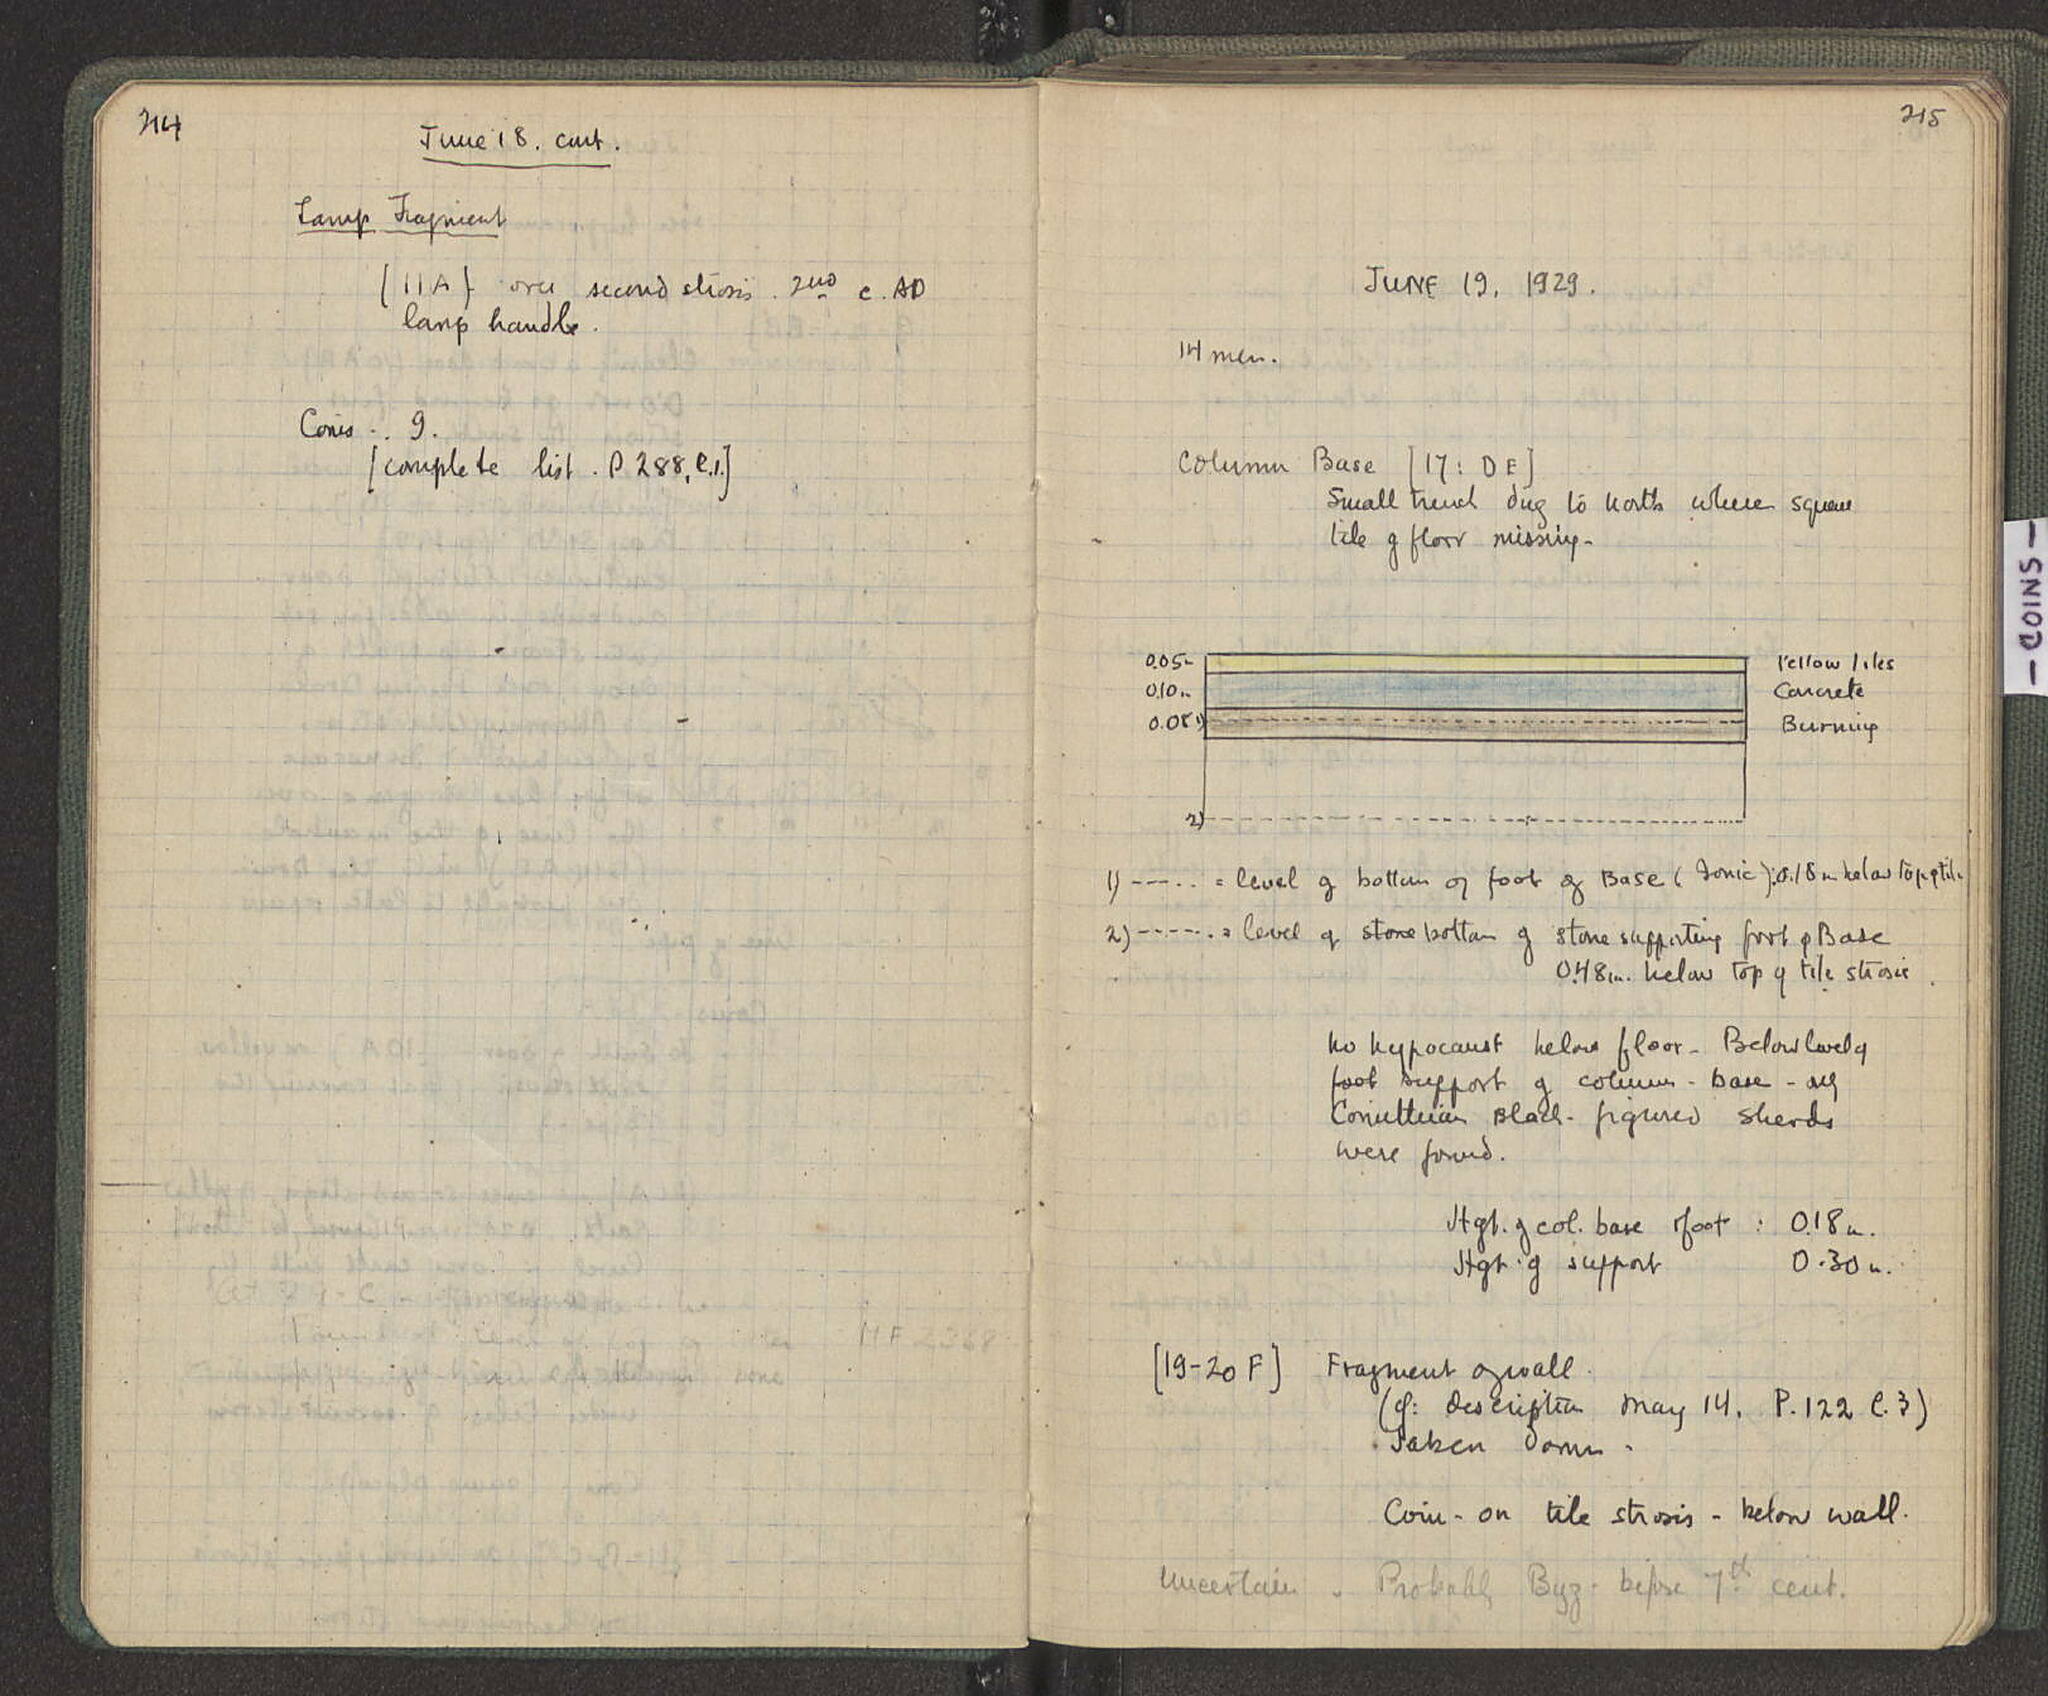 214
June 18. cont.
Lamp Fragment
[11A] over second strosis. 2nd c. AD
lamp handle.
Coins - 9.
[complete list. P 288, C.1.]
215
JUNE 19, 1929.
14 men.
Column Base [17: DE]
Small trench dug to north where square
tile of floor missing -
0.05m Yellow tiles
0.10m Concrete
0.08 1) Burning
2)
1) ----- = level of bottom of foot of Base (Ionic): 0.18m below top of tile
2) ------ = level of stone bottom of stone supporting foot of Base
0.48m. below top of tile strosis.
No hypocaust below floor - Below level of
foot support of column - base - only
Corinthian Black-figured sherds
were found.
Hgt. of col. base foot : 0.18m.
Hgt. of support 0.30m.
[19-20 F] Fragment of wall.
(cf: description May 14. P. 122 C. 3)
Taken down.
Coin - on tile strosis - below wall.
Uncertain. Probably Byz. before 7th cent.
- COINS -